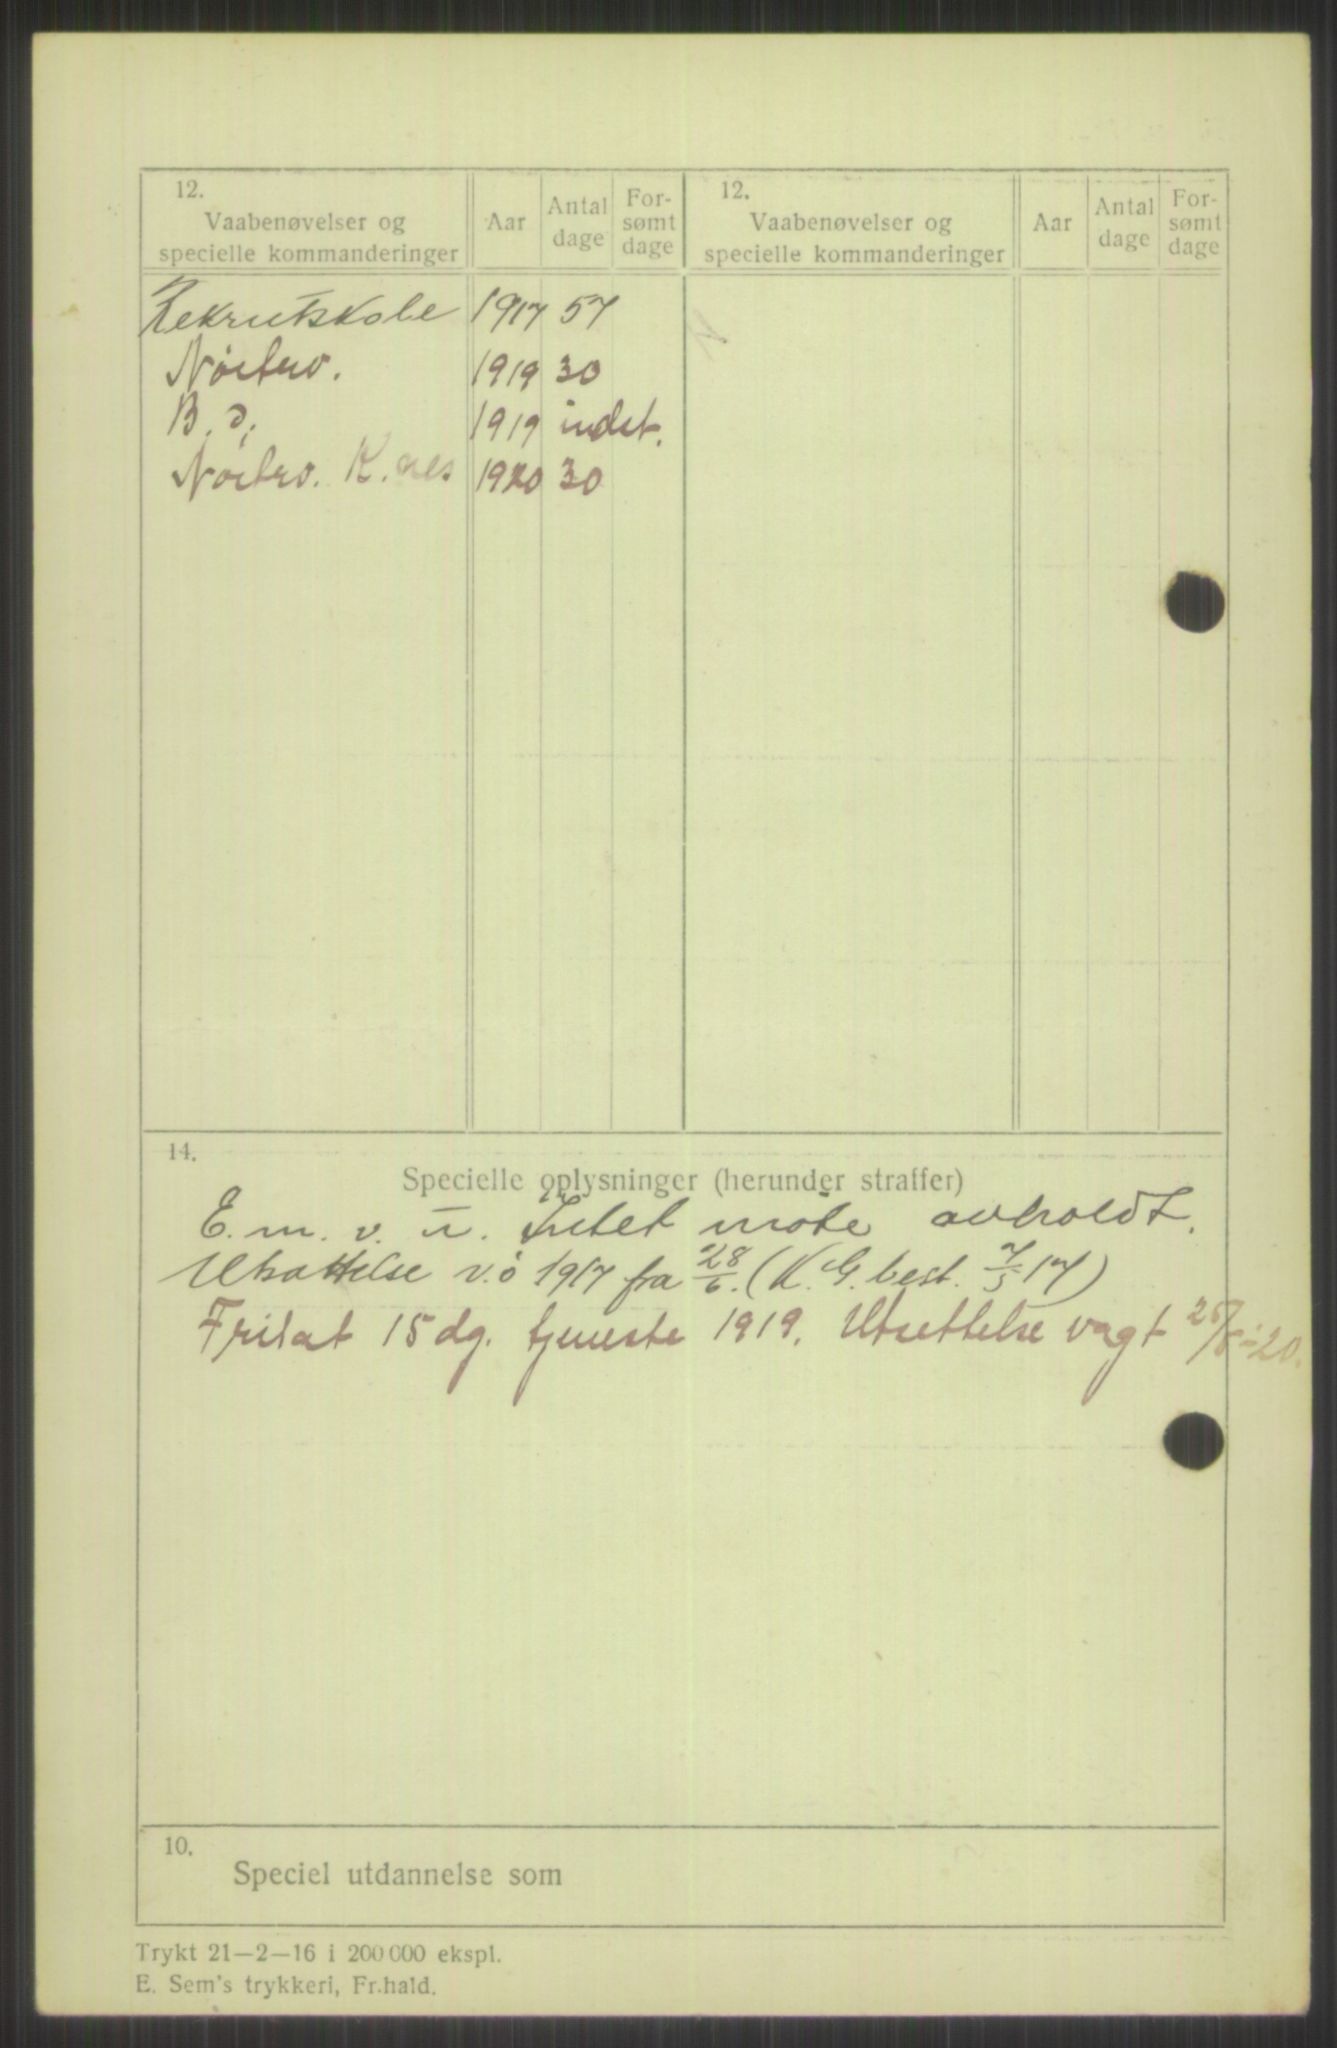 12.
Vaabenøvelser og
specielle kommanderinger
Aar
Antal
dage
For-
sømt
dage
12.
Vaabenøvelser og
specielle kommanderinger
Aar
Antal
dage
For-
sømt
dage
Rekrutskole 1917 57
1919 30
1919 indst.
1920 30
14.
Specielle oplysninger (herunder straffer)
E. m. v. u. Intet møte avholdt.
Utsættelse v.ö 1917 fra 28/6. (K. G. best. 7/5 17)
Fritat 15 dg. tjeneste 1919. Utsettelse vagt
10.
Speciel utdannelse som
Trykt 21—2—16 i 200 000 ekspl.
E. Sem's trykkeri, Fr.hald.